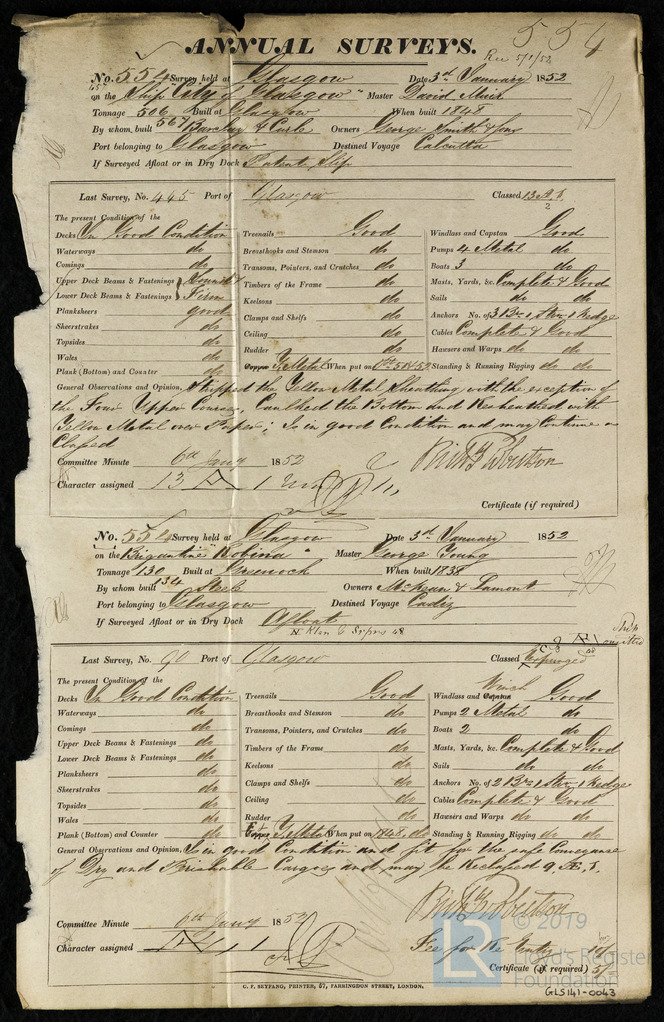 554
ANNUAL SURVEYS.
Rec 5/1/52
No. 554 Survey held at Glasgow Date 3rd January 1852
on the Ship "City of Glasgow" Master David Muir
Tonnage 506 Built at Glasgow When built 1848
567
By whom built Barclay & Curle Owners George Smith & Sons
Port belonging to Glasgow Destined Voyage Calcutta
If Surveyed Afloat or in Dry Dock Patent Slip
Last Survey, No. 445 Port of Glasgow Classed 13 A 1.
2
The present Condition of the
Decks In Good Condition Treenails Good Windlass and Capstan Good
Waterways do Breasthooks and Stemson do Pumps 4 Metal do
Comings do Transoms, Pointers, and Crutches do Boats 3 do
Upper Deck Beams & Fastenings Sound & Timbers of the Frame do Masts, Yards, &c. Complete & Good
Lower Deck Beams & Fastenings Firm Keelsons do Sails do do
Planksheers good Clamps and Shelfs do Anchors No. of 3 Br 1 Strm 1 Kedge
Sheerstrakes do Ceiling do Cables Complete & Good
Topsides do Rudder do Hawsers and Warps do do
Wales do Copper Y. Metal When put on Standing & Running Rigging do do
Plank (Bottom) and Counter do
General Observations and Opinion, Stripped the Yellow Metal Sheathing with the exception of
the Four Upper Courses, Caulked the Bottom and Resheathed with
Yellow Metal over Paper; Is in good Condition and may Continue as
Classed
Committee Minute 6th Jany 1852
Richd Robertson
Character assigned 13 A 1
Certificate (if required)
No. 554 Survey held at Glasgow Date 3rd January 1852
on the Brigantine "Robina" Master George Young
Tonnage 130 Built at Greenock When built 1838
134
By whom built Steele Owners McKean & Lamont
Port belonging to Glasgow Destined Voyage Cadiz
If Surveyed Afloat or in Dry Dock Afloat
Last Survey, No. 90 Port of Glasgow Classed Expunged
48
The present Condition of the
Decks In Good Condition Treenails Good Windlass and Capstan Winch Good
Waterways do Breasthooks and Stemson do Pumps 2 Metal do
Comings do Transoms, Pointers, and Crutches do Boats 2 do
Upper Deck Beams & Fastenings do Timbers of the Frame do Masts, Yards, &c. Complete & Good
Lower Deck Beams & Fastenings do Keelsons do Sails do do
Planksheers do Clamps and Shelfs do Anchors No. of 2 Br 1 Strm 1 Kedge
Sheerstrakes do Ceiling do Cables Complete & Good
Topsides do Rudder do Hawsers and Warps do do
Wales do Copper Y. Metal When put on 1848, do Standing & Running Rigging do do
Plank (Bottom) and Counter do
General Observations and Opinion, Is in good Condition and fit for the safe Conveyance
of Dry and Perishable Cargoes and may be Reclassed Æ 1.
Richd Robertson
Committee Minute 6th Jany 1852
Character assigned
Fee for Re Entry
Certificate (if required) 5/-
© 2019
LR Lloyd's Register
Foundation
GLS141-0043
C. F. SEYFANG, PRINTER, 57, FARRINGDON STREET, LONDON.